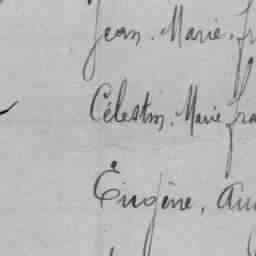 Jean. Marie. fr
Célestin. Marie fra
Eugène. Au